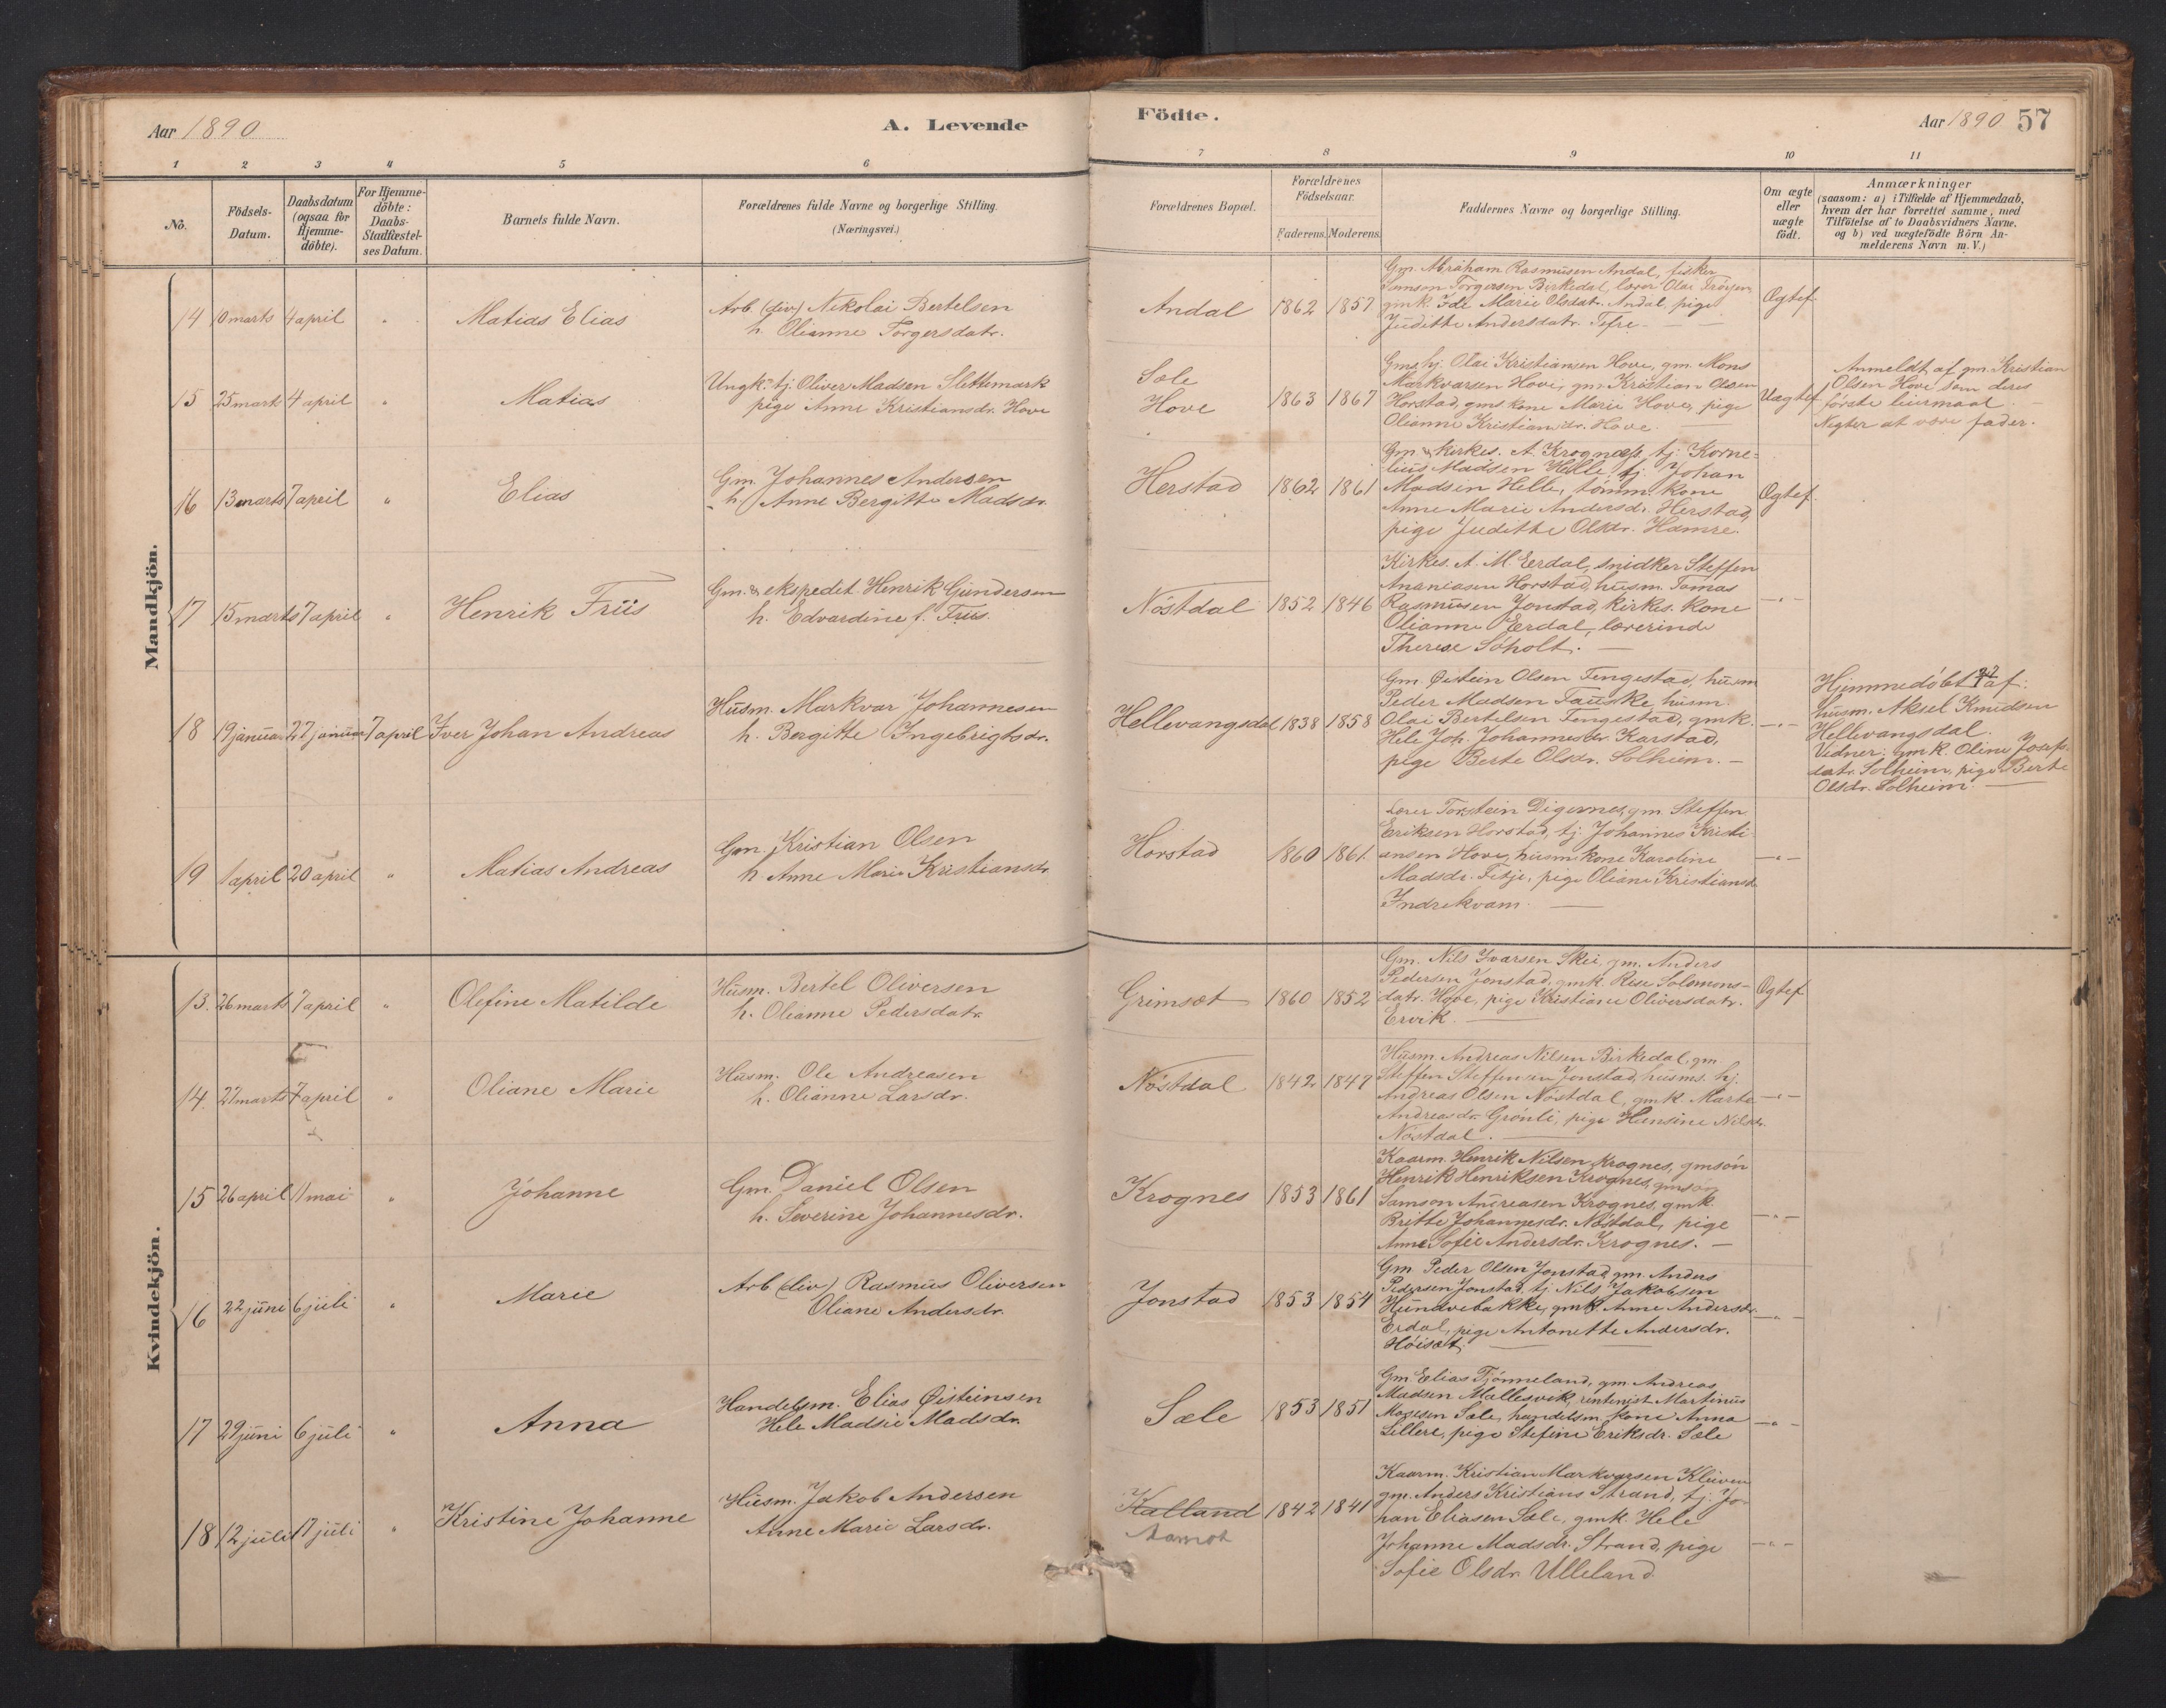 Aar 1890
A. Levende
Födte.
Aar 1890 57
1 2 3 4 5 6 7 8 9 10 11
No.
Födsels-
Datum.
Daabsdatum
(ogsaa for
Hjemme-
döbte).
For Hjemme-
döbte:
Daabs-
Stadfæstel-
ses Datum.
Barnets fulde Navn.
Forældrenes fulde Navne og borgerlige Stilling.
(Næringsvei.)
Forældrenes Bopæl.
Forældrenes
Födselsaar.
Faderens. Moderens.
Faddernes Navne og borgerlige Stilling.
Om ægte
eller
uægte
födt.
Anmærkninger
(saasom: a) i Tilfælde af Hjemmedaab,
hvem der har forrettet samme, med
Tilföielse af to Daabsvidners Navne,
og b) ved uægtefödte Börn An-
melderens Navn m. V.)
Mandkjön.
14 10 marts 4 april " Matias Elias
Arb. (div) Nikolai Bertelsen
h. Olianne Torgersdatr.
Andal 1862 1857
Gm. Abraham Rasmusen Andal, fisker
Samson Torgersen Birkedal, lærer Olai
gmk. Marie Olsdatr. Andal, pige
Juditte Andersdatr. Tefre
Ægtef.
15 25 mart 4 april " Matias
Ungk. tj. Oliver Madsen Slettemark
pige Anne Kristiansdr. Hove
Sæle
Hove
1863 1867
Gmshj. Olai Kristiansen Hove, gm. Mons
Markvarsen Hove, gm. Kristian Olsen
Horstad, gms kone Marie Hove, pige
Olianne Kristiansdr. Hove.
Uægtef.
Anmeldt af gm. Kristian
Olsen Hove som deres
første leiermaal.
Negter at være fader.
16 13 marts 7 april " Elias
Gm. Johannes Andersen
h. Anne Bergitte Madsdr.
Herstad 1862 1861
Gm & kirkes. A. Krognæss, tj. Korne-
lius Madsen Helle, tj. Johan
Madsen Helle, tömm. kone
Anne Marie Andersdr. Herstad,
pige Juditte Olsdr. Hamre.
Ægtef.
17 15 marts 7 april " Henrik Friis
Gm. & ekspedit. Henrik Gundersen
h. Edvardine f. Friis.
Nöstdal 1852 1846
Kirkes. A. M. Erdal, snidker Steffen
Ananiasen Horstad, husm. Tomas
Rasmusen Jonstad, kirkes. kone
Olianne Erdal, lærerinde
Therese Söholt.
— " —
18 19 januar 27 januar 7 april Iver Johan Andreas
Husm. Markvar Johannesen
h. Bergitte Ingebrigtsdr.
Hellevangsdal 1838 1858
Gm. Øistein Olsen Tengestad, husm
Peder Madsen Fauske, husm.
Olai Bertelsen Tengestad, gmk.
Hele Joh. Johannesdr. Karstad,
pige Berte Olsdr. Solheim.
— " —
Hjemmedöbt af:
husm. Aksel Knudsen
Hellevangsdal.
Vidner: gmk. Oline Josefs-
datr. Solheim, pige Berte
Olsdr. Solheim.
19 1 april 20 april " Matias Andreas
Gm. Kristian Olsen
h. Anne Marie Kristiansdr.
Horstad 1860 1861
Lærer Torstein Digernes, gm. Steffen
Eriksen Horstad, tj. Johannes Kristi-
ansen Hove, husm. kone Karoline
Madsdr. Fitje, pige Oliane Kristiansdr.
Indrekvam.
— " —
Kvindekjön.
13. 26 marts 7 april " Olefine Matilde
Husm. Bertel Oliversen
h. Olianne Pedersdatr.
Grimsæt 1860 1852
Gm. Nils Ivarsen Skei, gm. Anders
Pedersen Jonstad, gmk. Rese Solomons-
datr. Hove, pige Kristiane Oliversdatr.
Ervik.
Ægtef
14. 27 marts 7 april " Oliane Marie
Husm. Ole Andreasen
h. Olianne Larsdr.
Nöstdal 1842 1847
Husm. Andreas Nilsen Birkedal, gm.
Steffen Steffensen Jonstad, husms. hj.
Andreas Olsen Nöstdal, gmk. Marte
Andreasdr. Grönli, pige Hansine Nilsdr.
Nöstdal.
— " —
15 26 april 11 mai " Johanne
Gm. Daniel Olsen
h. Severine Johannesdr.
Krognes 1853 1861
Kaarm. Henrik Nilsen Krognes, gmsön
Henrik Henriksen Krognes, gmsög
Samson Andreasen Krognes, gmk.
Britte Johannesdr. Nöstdal, pige
Anne Sofie Andersdr. Krognes.
— " —
16 22 juni 6 juli " Marie
Arb (div) Rasmus Oliversen
Oliane Andersdr.
Jonstad 1853 1854
Gm Peder Olsen Jonstad, gm. Anders
Pedersen Jonstad, tj. Nils Jakobsen
Hundvebakke, gmk. Anne Andersdr.
Erdal, pige Antonette Andersdr.
Höisæt.
— " —
17 29 juni 6 juli " Anna
Handelsm. Elias Øisteinsen
Hele Madsie Madsdr.
Sæle 1853 1851
Gm Elias Tjönneland, gm. Andreas
Madsen Mallesvik, rentenist Martinus
Mogesen Sæle, handelsm. kone Anna
Lillere, pige Stefine Eriksdr. Sæle
— " —
18 12 juli 17 juli " Kristine Johanne
Husm. Jakob Andersen
Anne Marie Larsdr.
Kalland
1842 1841
Kaarm. Kristian Markvarsen Kleiven
gm. Anders Kristians Strand, tj. Jo-
han Eliasen Sæle, gmk. Hele
Johanne Madsdr. Strand, pige
Sofie Olsdr. Ulleland.
— " —